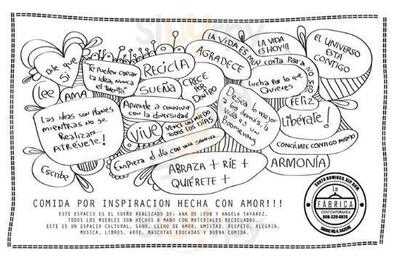 Dile que
sí
lee
AMA
Te puedes copiar
la idea, nunca
el talento
RECICLA
SUEÑA
AGRADECE
CRECE
POR
DENTRO
LA VIDA ES HOY
LA
VIDA
ES HOY!!!
EL UNIVERSO
ESTA
CONTIGO
Lucha por lo que
Quieres
FELIZ
Libérate!
Desea lo mejor
a los demás, la
vida es un
boomerang
Aprende a convivir
con la diversidad
Las ideas son planes
mientras no se
Realizan
ATRÉVETE!
VIVE
Empieza el día con una sonrisa
Conciliate contigo mismo
ARMONÍA
Escribe
ABRAZA + RÍE +
QUIÉRETE +
COMIDA POR INSPIRACION HECHA CON AMOR!!!
ESTE ESPACIO ES EL SUEÑO REALIZADO DE: ANA DE LEON Y ANGELA TAVAREZ.
TODOS LOS MUEBLES SON HECHOS A MANO CON MATERIALES RECICLADOS.
ESTE ES UN ESPACIO CULTURAL, SANO, LLENO DE AMOR, AMISTAD, RESPETO, ALEGRIA,
MUSICA, LIBROS, ARTE, MASCOTAS EDUCADAS Y BUENA COMIDA.
La
FÁBRICA
CONTEMPORANEA